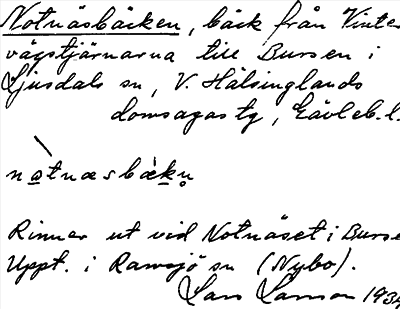 Notnäsbäcken, bäck från Vinter
vägstjärnarna till Bursen i
Ljusdals sn, V. Hälsinglands
domsagas tg, Gävleb. l.
nátnæsbæ̀kn̥
Rinner ut vid Notnäset i Bursen
Uppt. i Ramsjö sn (Nybo).
Lars Larsson 1934